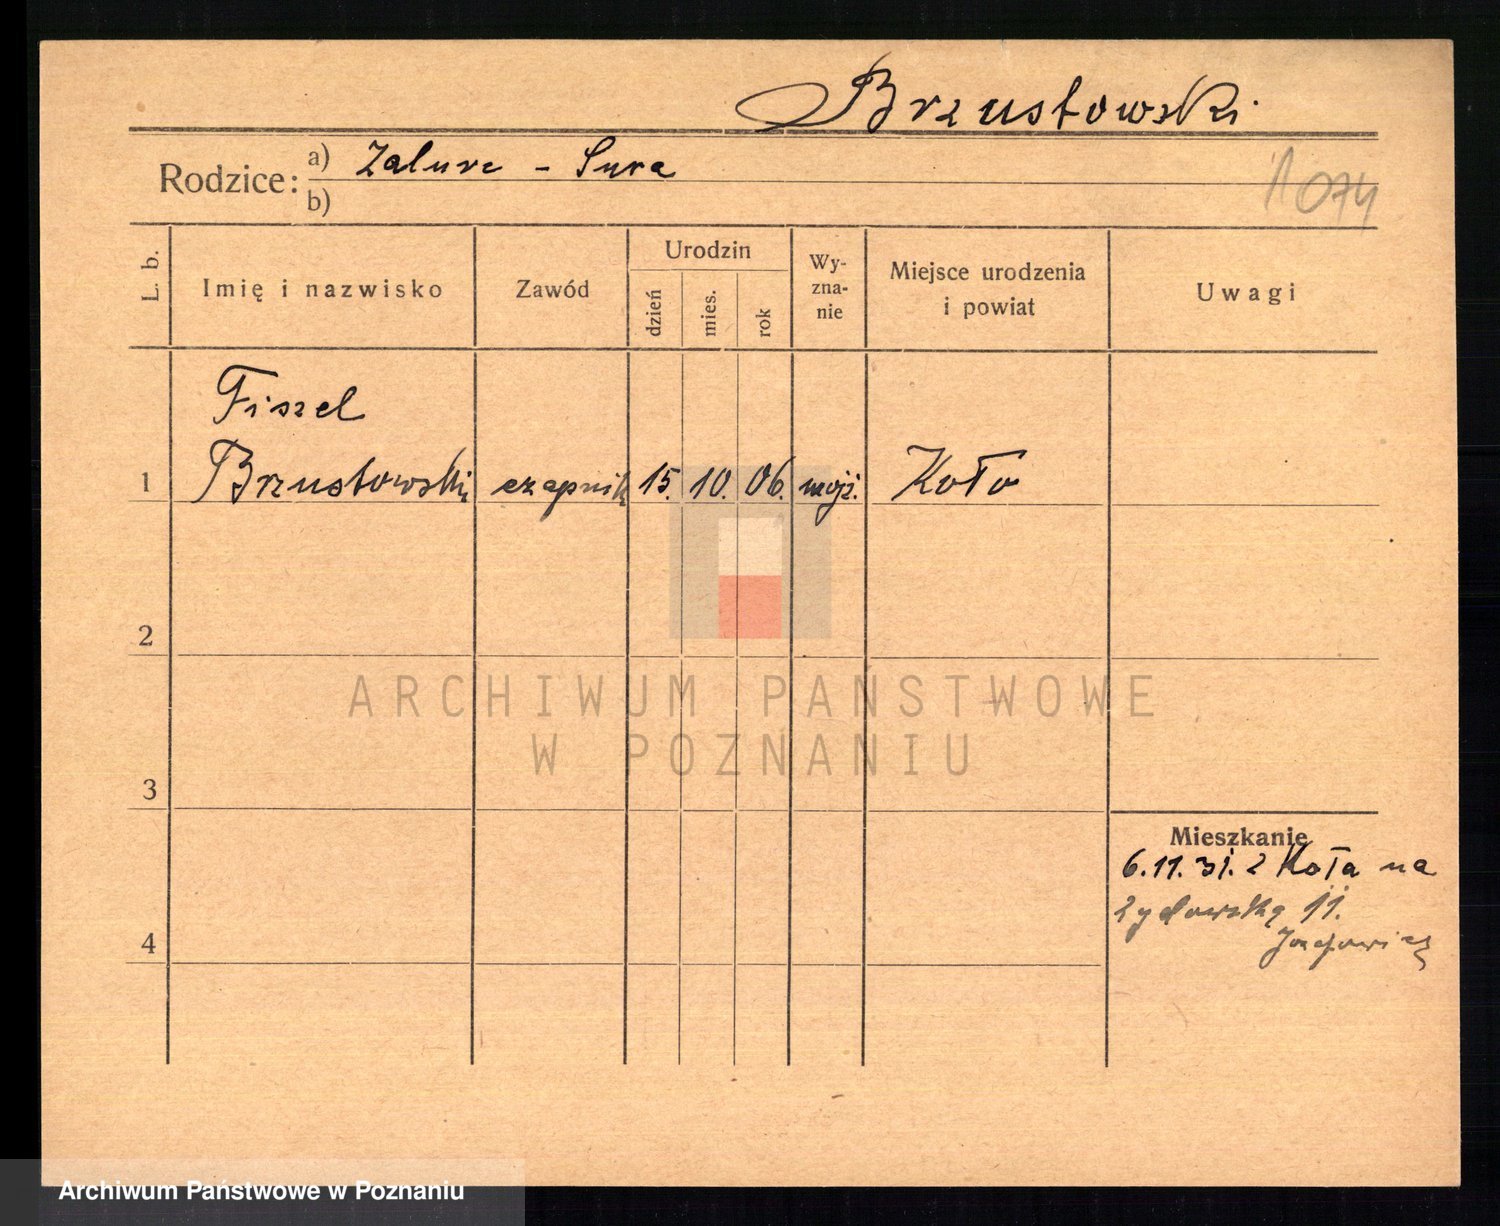 Brzustowski
Rodzice: a) Zalure - Sura
b)
1074
L. b.
Imię i nazwisko
Zawód
Urodzin
dzień
mies.
rok
Wy-
zna-
nie
Miejsce urodzenia
i powiat
Uwagi
Fiszel
1 Brzustowski czapnik 15. 10. 06. mojż. Koło
2
3
4
Mieszkanie
6.11.31. z Koła na
żydowską 11.
ARCHIWUM PAŃSTWOWE
W POZNANIU
Archiwum Państwowe w Poznaniu